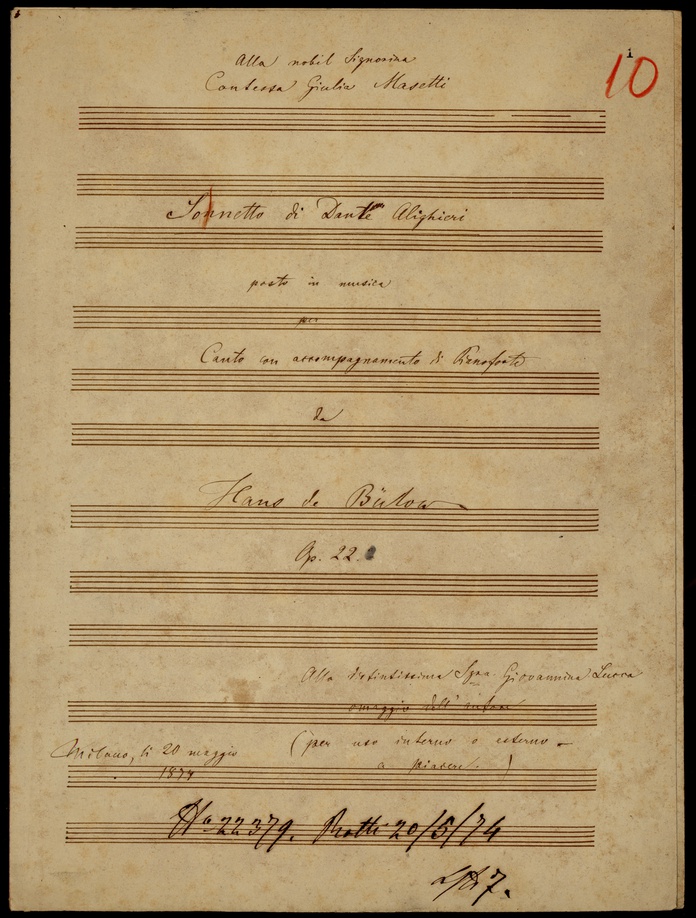 1
10
Alla nobil Signorina
Contessa Giulia Masetti
Sonnetto di Dante Alighieri
posto in musica
per
Canto con accompagnamento di Pianoforte
da
Hans de Bülow
Op. 22.
Alla distintissima Sgra. Giovannina Lucca
omaggio dell'autore
(per uso interno o esterno -
a piacere.)
Milano, li 20 maggio
1874
No 22379. 20/5/74
7.